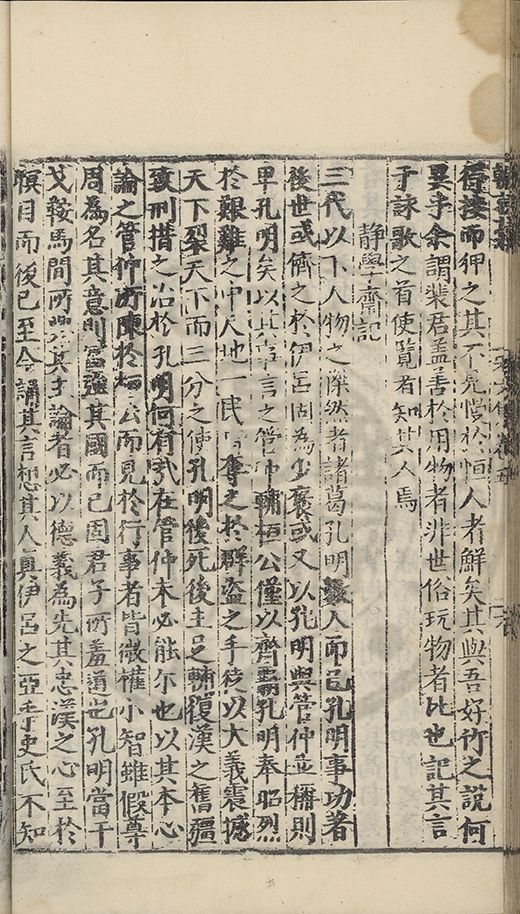 得接而狎之其不見愕於恒人者鮮矣其與吾好竹之說何
異乎余謂裴君盖善於用物者非世俗玩物者比也記其言
于詠歌之首使覧者知其人焉
静學齋記
三代以下人物之傑然者諸葛孔明數人而已孔明事功著
後世或儕之於伊呂固為少褒或又以孔明與管仲並稱則
卑孔明矣以其事言之管仲輔桓公僅以齊霸孔明奉昭烈
於艱難之中尺地一民皆奪之於群盗之手徒以大義震撼
天下裂天下而三分之使孔明後死後主足輔復漢之舊疆
致刑措之治於孔明何有哉在管仲未必能尔也以其本心
論之管仲所陳於桓公而見於行事者皆微權小智雖假尊
周為名其意則富强其國而已固君子所羞道也孔明當干
戈鞍馬間所與其主論者必以德義為先其忠漢之心至於
瞑目而後已至今誦其言想其人真伊呂之亞乎史氏不知